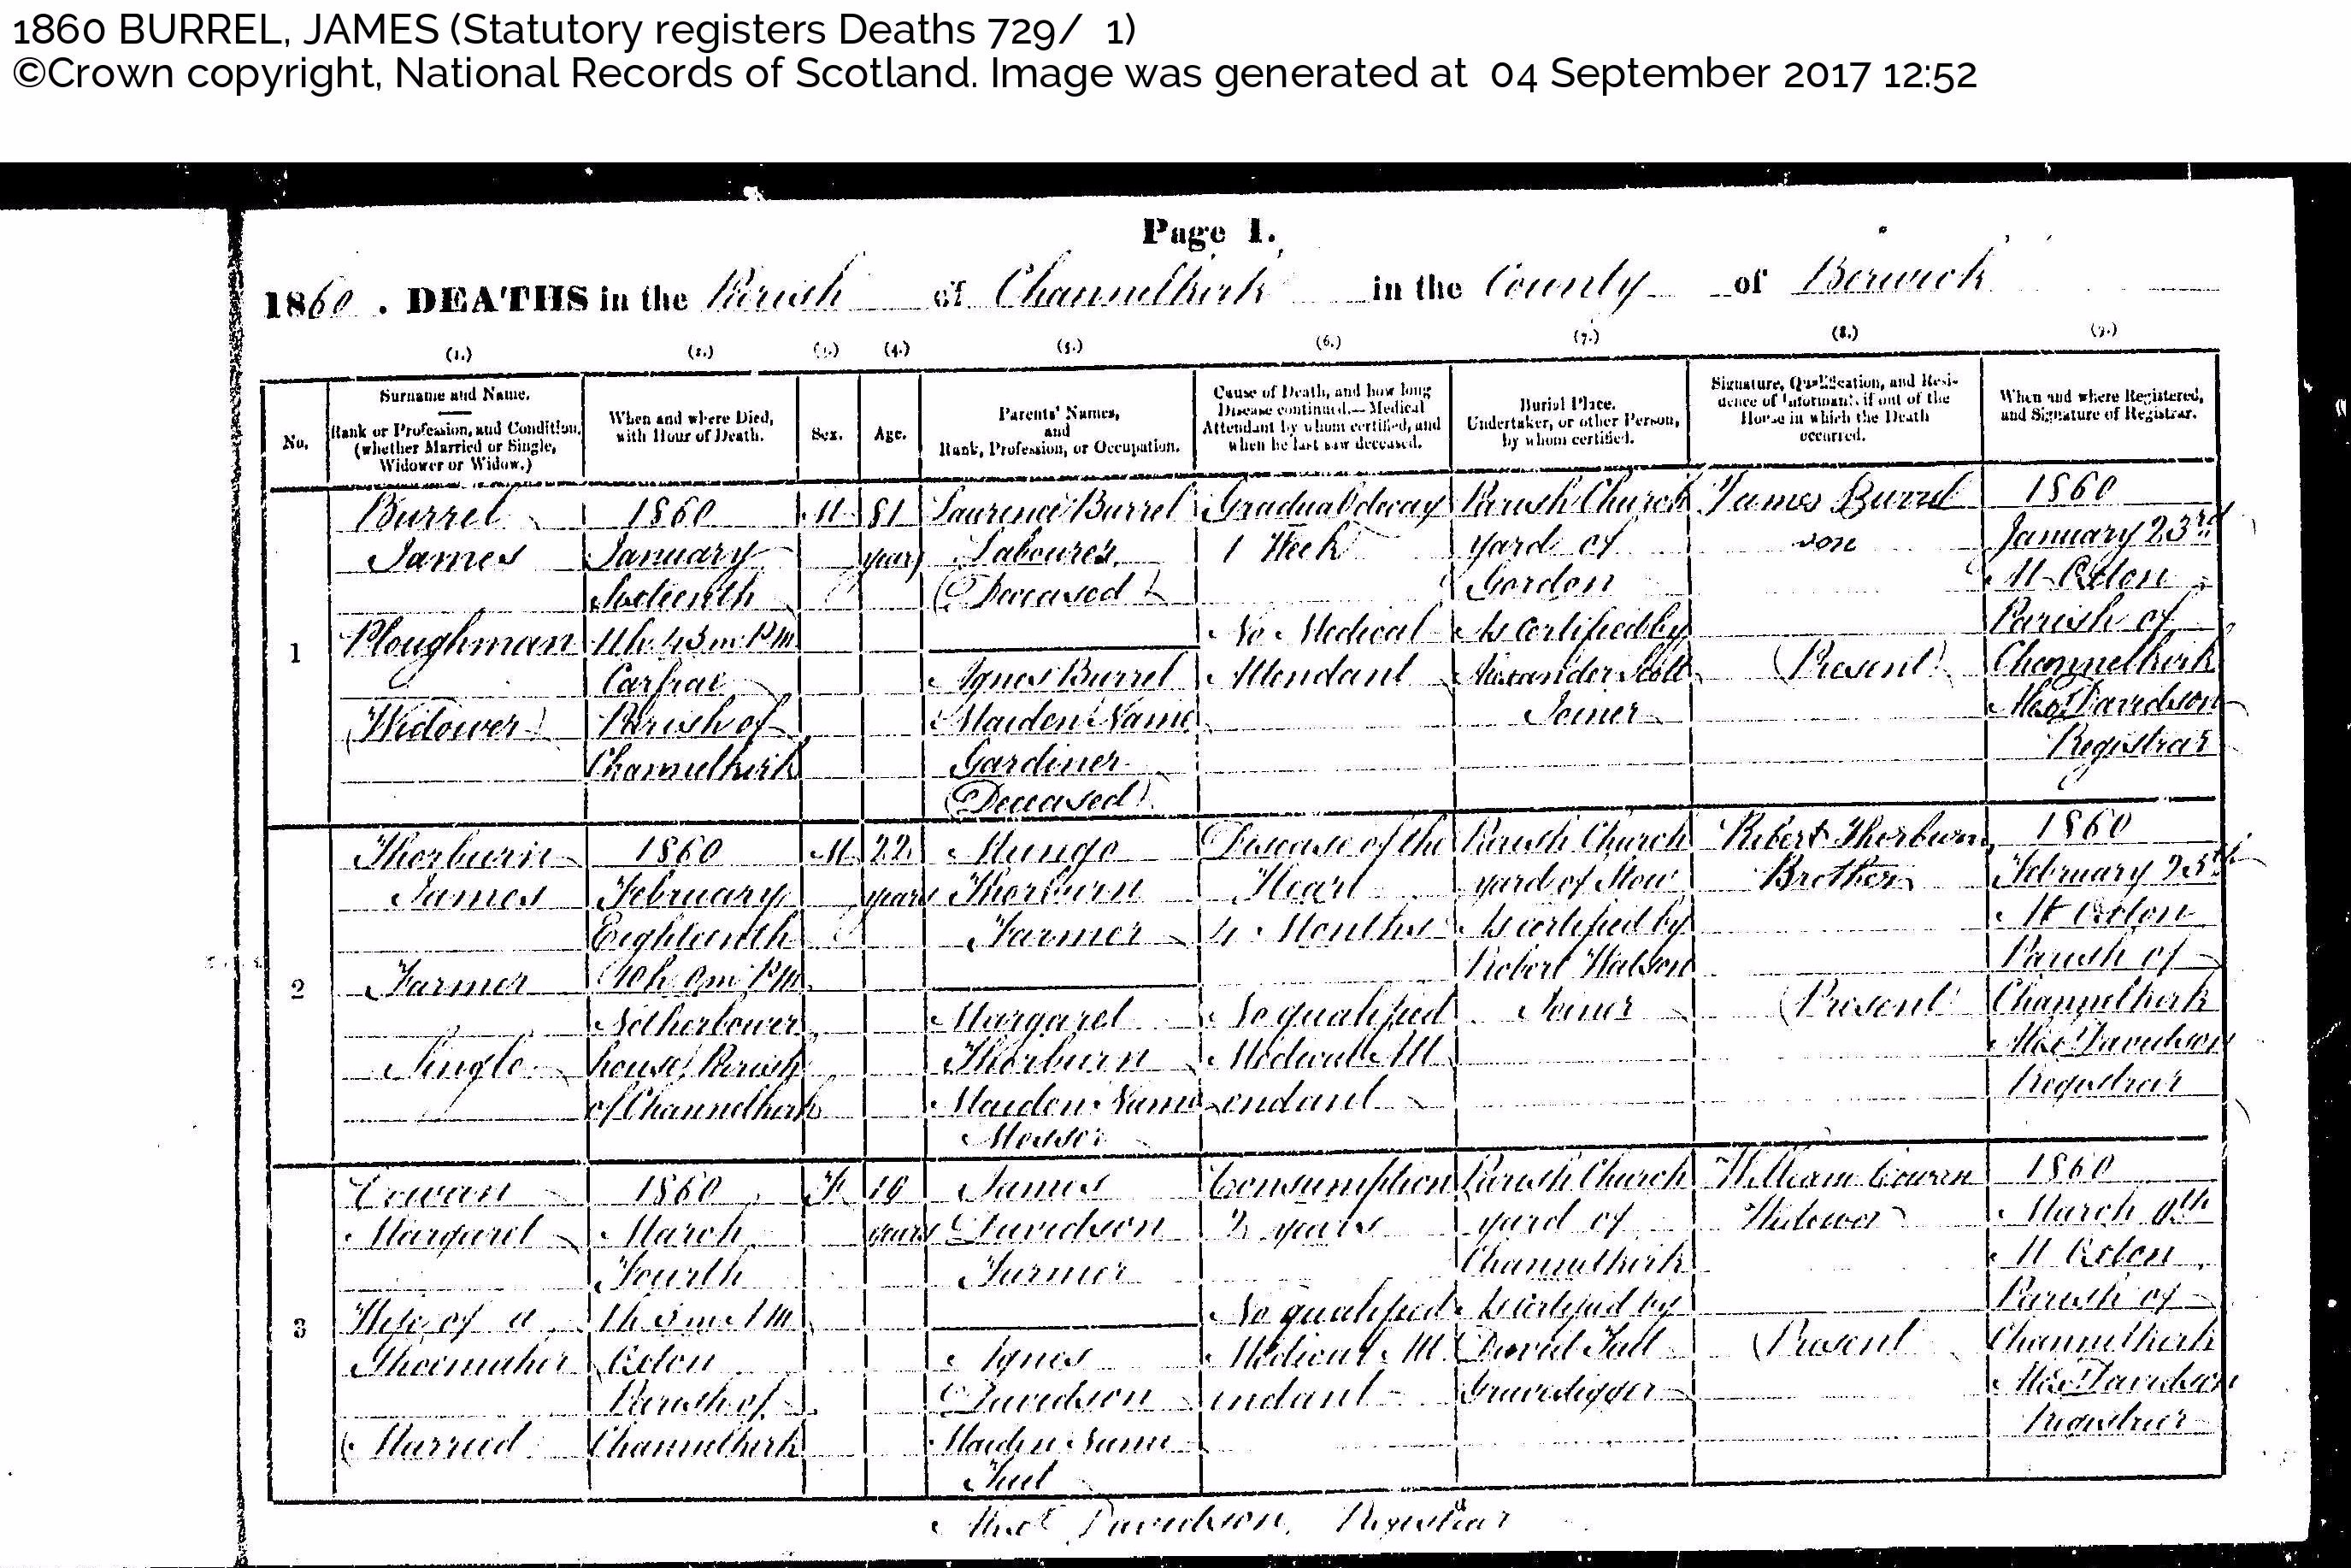 1860 BURREL, JAMES (Statutory registers Deaths 729/ 1)
©Crown copyright, National Records of Scotland. Image was generated at 04 September 2017 12:52
Page 1.
1860. DEATHS in the Parish of Channelkirk in the County of Berwick
(1.) (2.) (3.) (4.) (5.) (6.) (7.) (8.) (9.)
No.
Surname and Name.
Rank or Profession, and Condition,
(whether Married or Single,
Widower or Widow.)
When and where Died,
with Hour of Death.
Sex.
Age.
Parents' Names,
and
Rank, Profession, or Occupation.
Cause of Death, and how long
Disease continued.—Medical
Attendant by whom certified, and
when he last saw deceased.
Burial Place.
Undertaker, or other Person,
by whom certified.
Signature, Qualification, and Resi-
dence of Informant, if out of the
House in which the Death
occurred.
When and where Registered,
and Signature of Registrar.
1
Burrel
James
Ploughman
(Widower)
1860
January
11h. 45m PM
Carfrae
Parish of
Channelkirk
M
81
years
Laurence Burrel
Labourer
(Deceased)
Agnes Burrel
Maiden Name
Gardiner
(Deceased)
Gradual decay
1 Week
No Medical
Attendant
Parish Church
yard of
Gordon
As Certified by
Alexander Scott
Joiner
James Burrel
son
(Present)
1860
January 23rd
At Oxton
Parish of
Channelkirk
Alexr Davidson
Registrar
2
Thorburn
James
Farmer
Single
1860
February
Eighteenth
10h. 0m PM
Netherbower
house, Parish
of Channelkirk
M
22
years
Mungo
Thorburn
Farmer
Margaret
Thorburn
Maiden Name
Messer
Disease of the
Heart
4 Months
No qualified
Medical Att
endant
Parish Church
yard of Stow
As certified by
Robert Watson
Joiner
Robert Thorburn
Brother
(Present)
1860
February
At Oxton
Parish of
Channelkirk
Alexr Davidson
Registrar
3
Cowan
Margaret
Wife of a
Shoemaker
(Married
1860
March
Fourth
1h 5m AM
Oxton
Parish of
Channelkirk
F
years
James
Davidson
Farmer
Agnes
Davidson
Maiden Name
Consumption
2 years
No qualified
Medical Att
endant
Parish Church
yard of
Channelkirk
As certified by
David
Gravedigger
William Cowan
Widower
(Present
1860
March
At Oxton
Parish of
Channelkirk
Alexr Davidson
Registrar
Alexr Davidson, Registrar